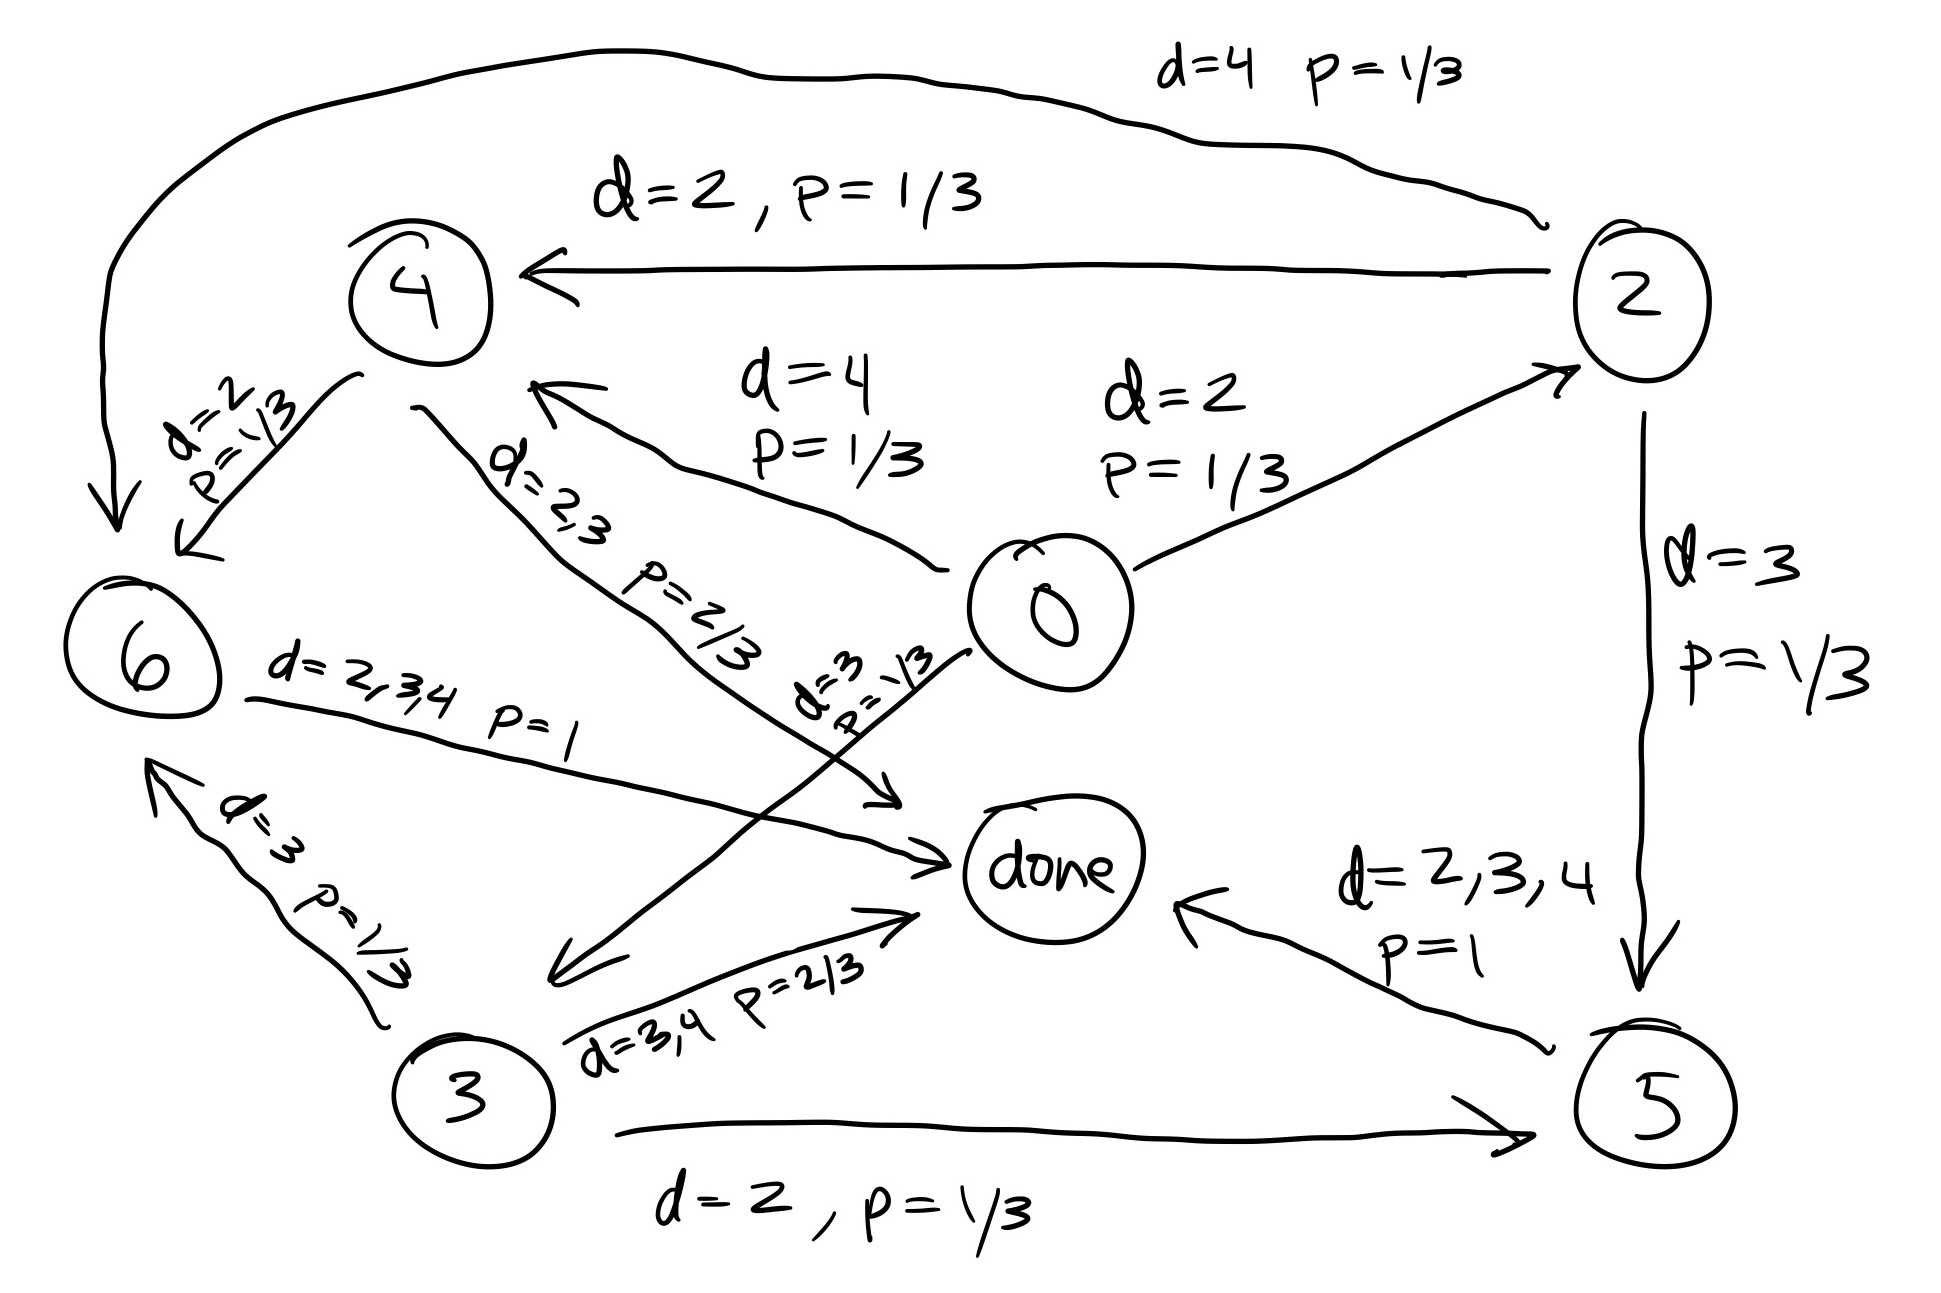 d=4 p=1/3
d=2, p=1/3
4
2
d=4
p=1/3
d=2
p=1/3
d=2
p=1/3
d=2,3 p=2/3
d=3
p=1/3
0
6
d=2,3,4 p=1
d=3
p=1/3
done
d=2,3,4
p=1
d=3 p=1/3
d=3,4 p=2/3
3
5
d=2, p=1/3